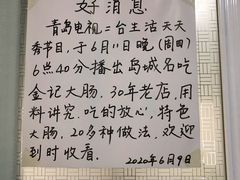 好消息
青岛电视二台生活天天
秀节目,于6月11日晚(周四)
6点40分播出岛城名吃
金记大肠.30年老店,用
料讲究.吃的放心,特色
大肠.20多种做法,欢迎
到时收看.
2020年6月9日